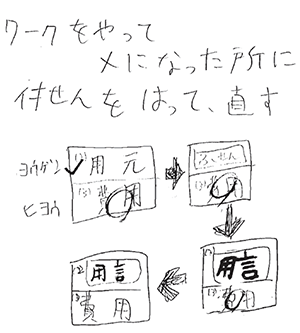 ワークをやって
×になった所に
付せんをはって、直す
ヨウゲン
(2) 用元
ヒヨウ
(3) 費用
ふせん
(3) 費用
(2) 用言
(3) 費用
(2) 用言
(3) 費用